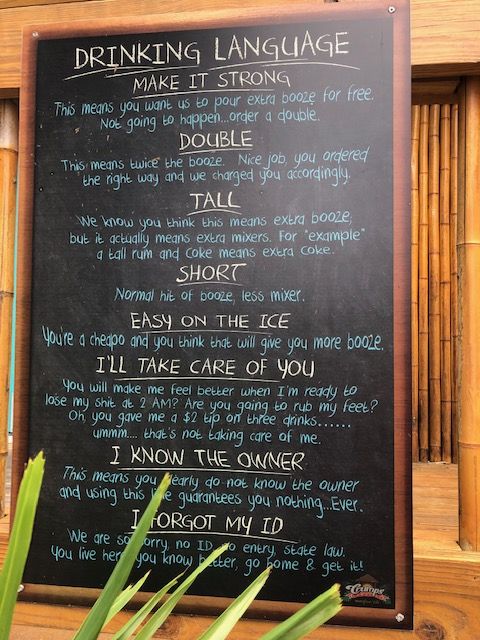 DRINKING LANGUAGE
MAKE IT STRONG
This means you want us to pour extra booze for free.
Not going to happen...order a double.
DOUBLE
This means twice the booze. Nice job, you ordered
the right way and we charged you accordingly.
TALL
We know you think this means extra booze,
but it actually means extra mixers. For "example"
a tall rum and coke means extra coke.
SHORT
Normal hit of booze, less mixer.
EASY ON THE ICE
You're a cheapo and you think that will give you more booze.
I'LL TAKE CARE OF YOU
You will make me feel better when I'm ready to
lose my shit at 2 AM? Are you going to rub my feet?
Oh you gave me a $2 tip on three drinks......
ummm.... that's not taking care of me.
I KNOW THE OWNER
This means you clearly do not know the owner
and using this line guarantees you nothing...Ever.
I FORGOT MY ID
We are sorry, no ID no entry, state law.
You live here you know better, go home & get it!